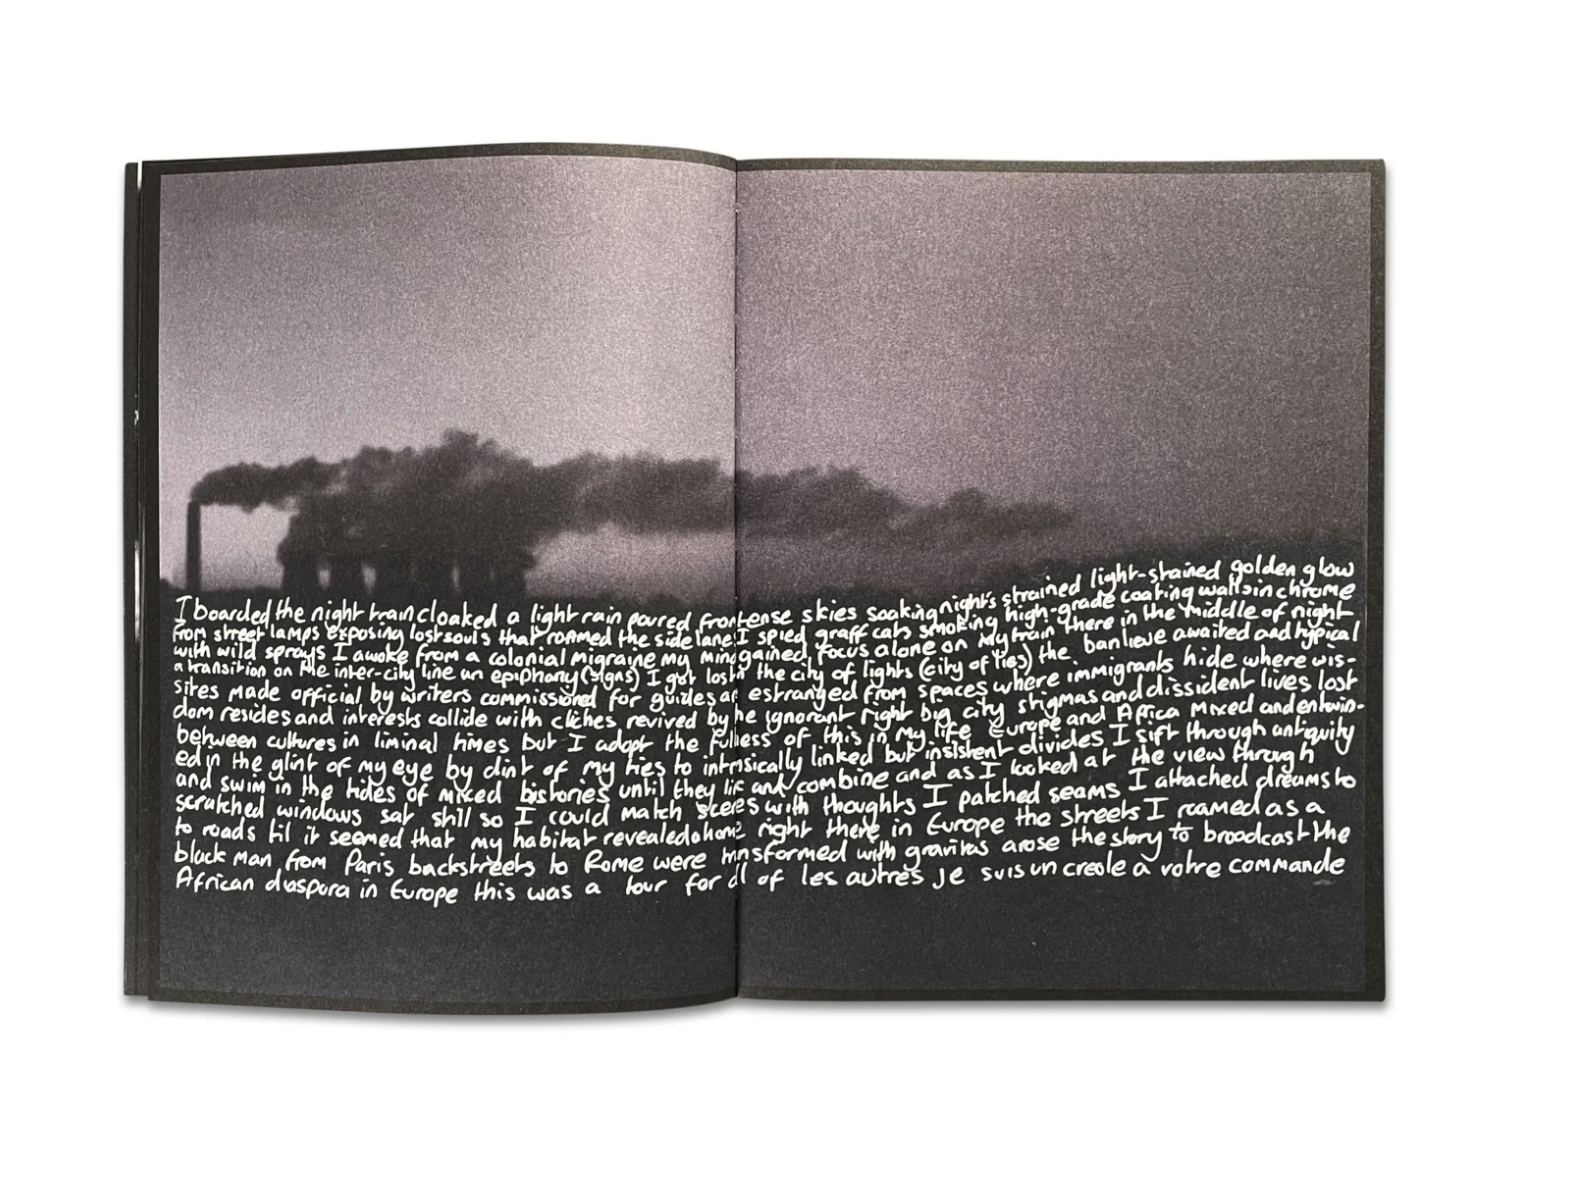 I boarded the night train cloaked a light rain poured from tense skies soaking night's strained light-stained golden glow
from street lamps exposing lost souls that roamed the side lane I spied graff cats smoking high-grade coating walls in chrome
with wild sprays I awoke from a colonial migraine my mind gained focus alone on my train there in the middle of night
a transition on the inter-city line an epiphany (signs) I got lost in the city of lights (city of lies) the banlieue awaited and typical
sites made official by writers commissioned for guides are estranged from spaces where immigrants hide where wis-
dom resides and interests collide with clichés revived by the ignorant right big city stigmas and dissident lives lost
between cultures in liminal times but I adopt the fullness of this in my life Europe and Africa mixed and entwin-
ed in the glint of my eye by dint of my ties to intrinsically linked but insistent divides I sift through antiquity
and swim in the tides of mixed histories until they link and combine and as I looked at the view through
scratched windows sat still so I could match scenes with thoughts I patched seams I attached dreams to
to roads til it seemed that my habitat revealed a home right there in Europe the streets I roamed as a
black man from Paris backstreets to Rome were transformed with gravitas arose the story to broadcast the
African diaspora in Europe this was a tour for all of les autres je suis un creole à votre commande